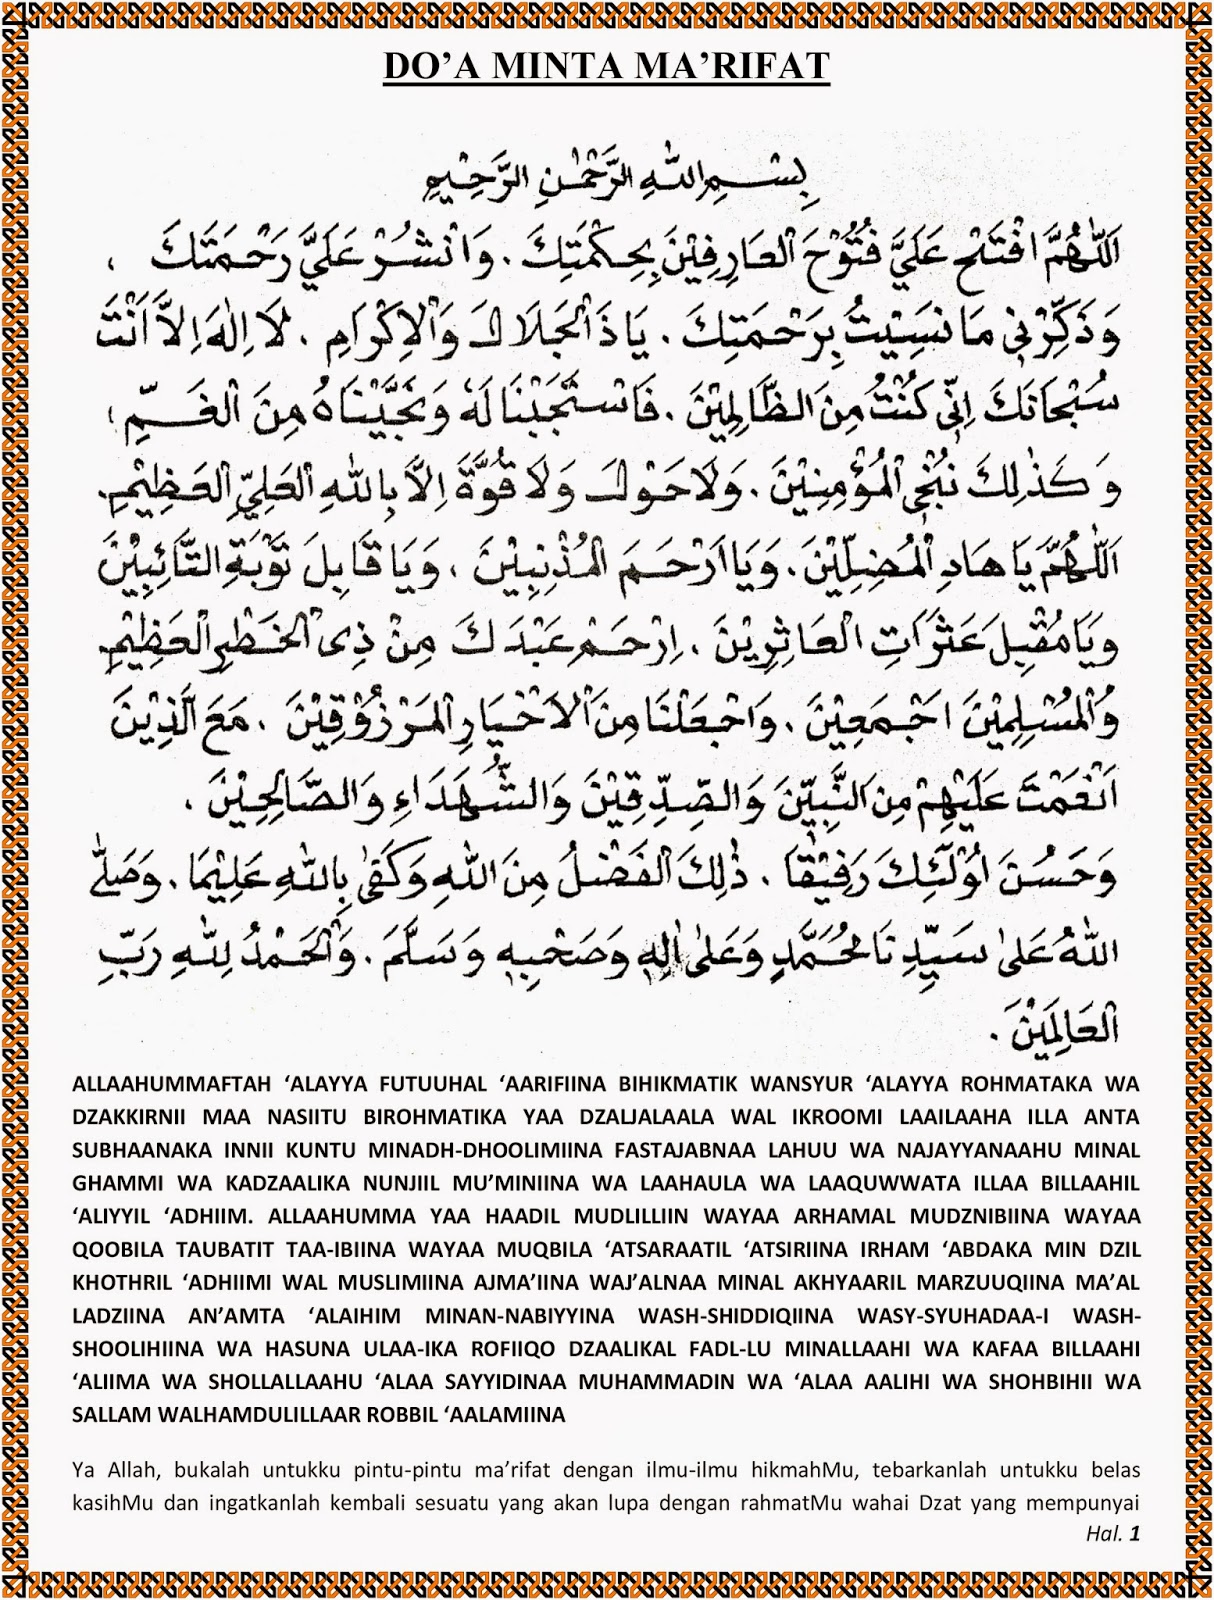 DO’A MINTA MA’RIFAT
بِسْمِ اللهِ الرَّحْمٰنِ الرَّحِيْمِ
اَللّٰهُمَّ افْتَحْ عَلَيَّ فُتُوْحَ الْعَارِفِيْنَ بِحِكْمَتِكَ . وَانْشُرْ عَلَيَّ رَحْمَتَكَ ،
وَذَكِّرْنِيْ مَا نَسِيْتُ بِرَحْمَتِكَ . يَا ذَا الْجَلَالِ وَالْاِكْرَامِ . لَا اِلٰهَ اِلَّا اَنْتَ
سُبْحَانَكَ اِنِّيْ كُنْتُ مِنَ الظَّالِمِيْنَ . فَاسْتَجَبْنَا لَهُ وَنَجَّيْنَاهُ مِنَ الْغَمِّ ،
وَكَذٰلِكَ نُنْجِى الْمُؤْمِنِيْنَ . وَلَا حَوْلَ وَلَا قُوَّةَ اِلَّا بِاللهِ الْعَلِيِّ الْعَظِيْمِ .
اَللّٰهُمَّ يَا هَادِ الْمُضِلِّيْنَ . وَيَا اَرْحَمَ الْمُذْنِبِيْنَ . وَيَا قَابِلَ تَوْبَةِ التَّائِبِيْنَ
وَيَا مُقْبِلَ عَثَرَاتِ الْعَاثِرِيْنَ . اِرْحَمْ عَبْدَكَ مِنْ ذِى الْخَطْرِ الْعَظِيْمِ
وَالْمُسْلِمِيْنَ اَجْمَعِيْنَ . وَاجْعَلْنَا مِنَ الْاَخْيَارِ الْمَرْزُوْقِيْنَ . مَعَ الَّذِيْنَ
اَنْعَمْتَ عَلَيْهِمْ مِنَ النَّبِيِّنَ وَالصِّدِّقِيْنَ وَالشُّهَدَاءِ وَالصَّالِحِيْنَ .
وَحَسُنَ اُولٰئِكَ رَفِيْقًا . ذٰلِكَ الْفَضْلُ مِنَ اللهِ وَكَفٰى بِاللهِ عَلِيْمًا . وَصَلَّى
اللهُ عَلٰى سَيِّدِنَا مُحَمَّدٍ وَعَلٰى اٰلِهِ وَصَحْبِهِ وَسَلَّمَ . وَالْحَمْدُ لِلّٰهِ رَبِّ
الْعَالَمِيْنَ .
ALLAAHUMMAFTAH ‘ALAYYA FUTUUHAL ‘AARIFIINA BIHIKMATIK WANSYUR ‘ALAYYA ROHMATAKA WA
DZAKKIRNII MAA NASIITU BIROHMATIKA YAA DZALJALAALA WAL IKROOMI LAAILAAHA ILLA ANTA
SUBHAANAKA INNII KUNTU MINADH-DHOOLIMIINA FASTAJABNAA LAHUU WA NAJAYYANAAHU MINAL
GHAMMI WA KADZAALIKA NUNJIIL MU’MINIINA WA LAAHAULA WA LAAQUWWATA ILLAA BILLAAHIL
‘ALIYYIL ‘ADHIIM. ALLAAHUMMA YAA HAADIL MUDLILLIIN WAYAA ARHAMAL MUDZNIBIINA WAYAA
QOOBILA TAUBATIT TAA-IBIINA WAYAA MUQBILA ‘ATSARAATIL ‘ATSIRIINA IRHAM ‘ABDAKA MIN DZIL
KHOTHRIL ‘ADHIIMI WAL MUSLIMIINA AJMA’IINA WAJ’ALNAA MINAL AKHYAARIL MARZUUQIINA MA’AL
LADZIINA AN’AMTA ‘ALAIHIM MINAN-NABIYYINA WASH-SHIDDIQIINA WASY-SYUHADAA-I WASH-
SHOOLIHIINA WA HASUNA ULAA-IKA ROFIIQO DZAALIKAL FADL-LU MINALLAAHI WA KAFAA BILLAAHI
‘ALIIMA WA SHOLLALLAAHU ‘ALAA SAYYIDINAA MUHAMMADIN WA ‘ALAA AALIHI WA SHOHBIHII WA
SALLAM WALHAMDULILLAAR ROBBIL ‘AALAMIINA
Ya Allah, bukalah untukku pintu-pintu ma’rifat dengan ilmu-ilmu hikmahMu, tebarkanlah untukku belas
kasihMu dan ingatkanlah kembali sesuatu yang akan lupa dengan rahmatMu wahai Dzat yang mempunyai
Hal. 1